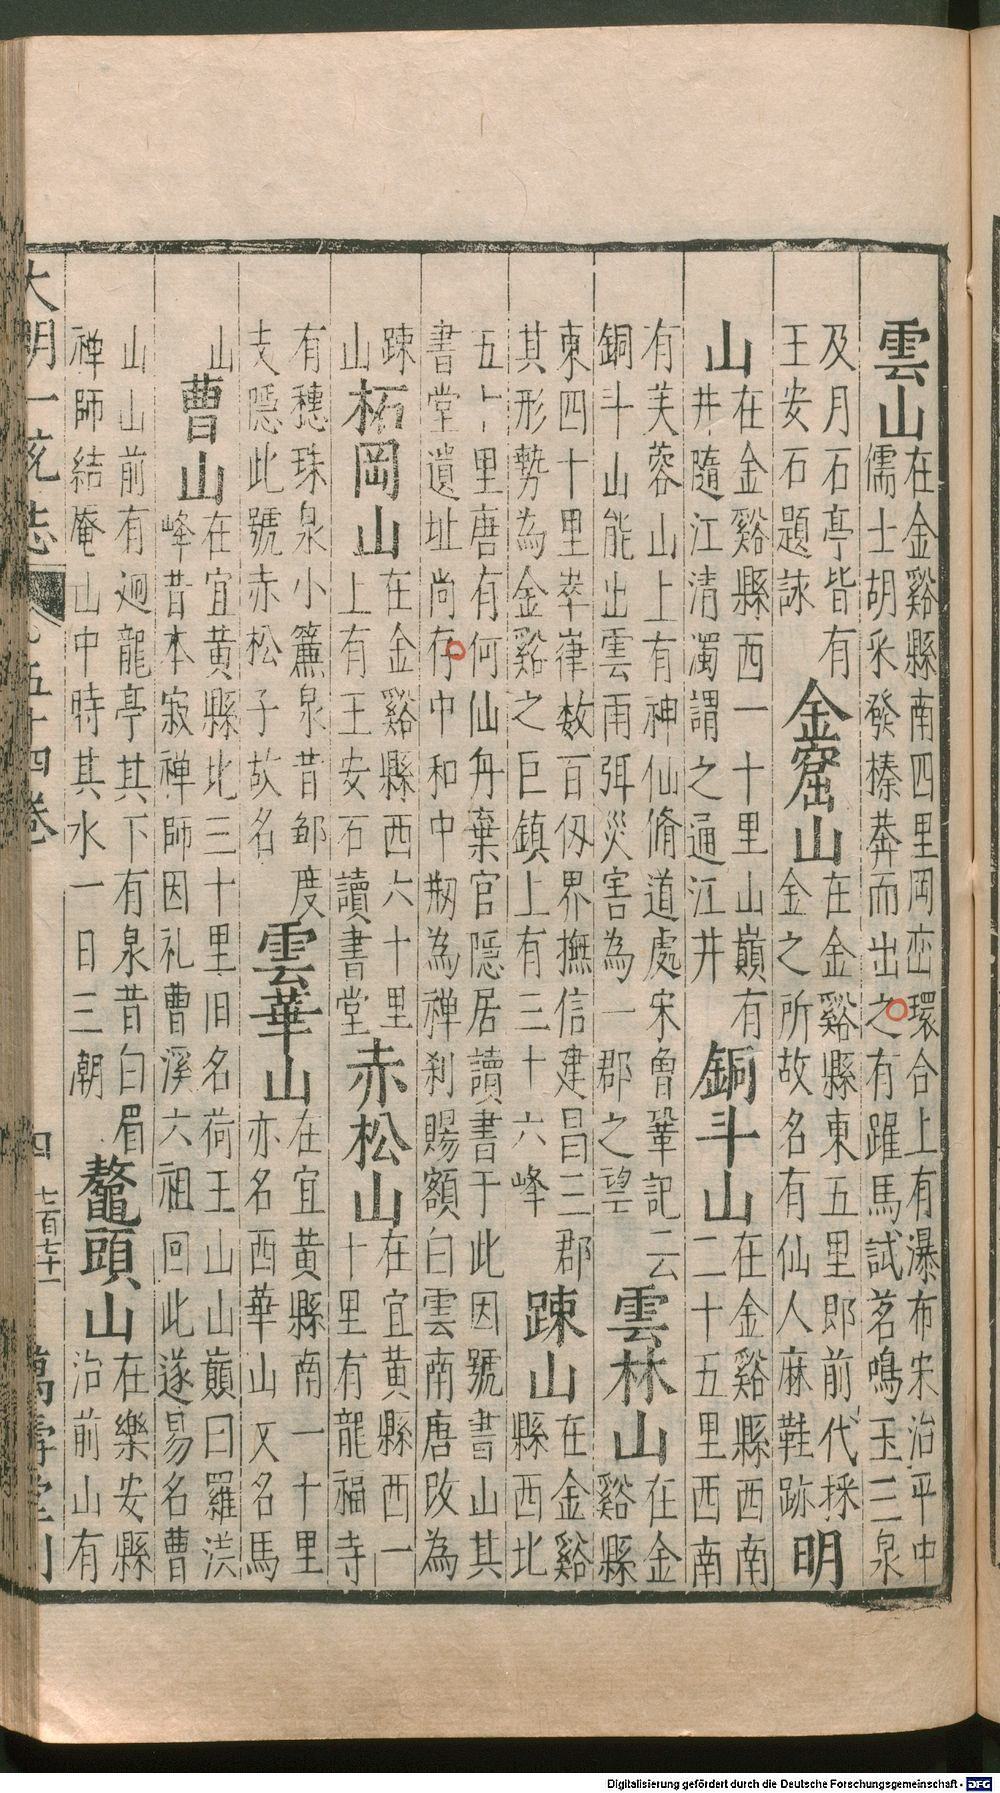 雲山 在金谿縣南四里岡巒環合上有瀑布宋治平中
儒士胡釆發榛莽而出之有躍馬試茗鳴玉三泉
及月石亭皆有
王安石題詠
金窟山 在金谿縣東五里即前代採
金之所故名有仙人麻鞋跡
明
山 在金谿縣西一十里山巔有
井隨江清濁謂之通江井
銅斗山 在金谿縣西南
二十五里西南
有芙蓉山上有神仙脩道處宋曾鞏記云
銅斗山能出雲雨弭災害為一郡之望
雲林山 在金
谿縣
東四十里崒嵂数百仭界撫信建昌三郡
其形勢為金谿之巨鎮上有三十六峰
踈山 在金谿
縣西北
五十里唐有何仙舟棄官隱居讀書于此因號書山其
書堂遺址尚存中和中剏為禅刹賜額白雲南唐改為
踈
山
柘岡山 在金谿縣西六十里
上有王安石讀書堂
赤松山 在宜黃縣西一
十里有龍福寺
有穗珠泉小簾泉昔邮度
支隱此號赤松子故名
雲華山 在宜黃縣南一十里
亦名西華山又名馬
山
曹山 在宜黃縣北三十里旧名荷玉山山巔曰羅漢
峰昔本寂禅師因礼曹溪六祖回此遂易名曹
山山前有廻龍亭其下有泉昔白眉
禅師結庵山中時其水一日三朝
鰲頭山 在樂安縣
治前山有
大明一统志 五十四卷 四 七百七十一 萬壽堂刊
Digitalisierung gefördert durch die Deutsche Forschungsgemeinschaft - DFG